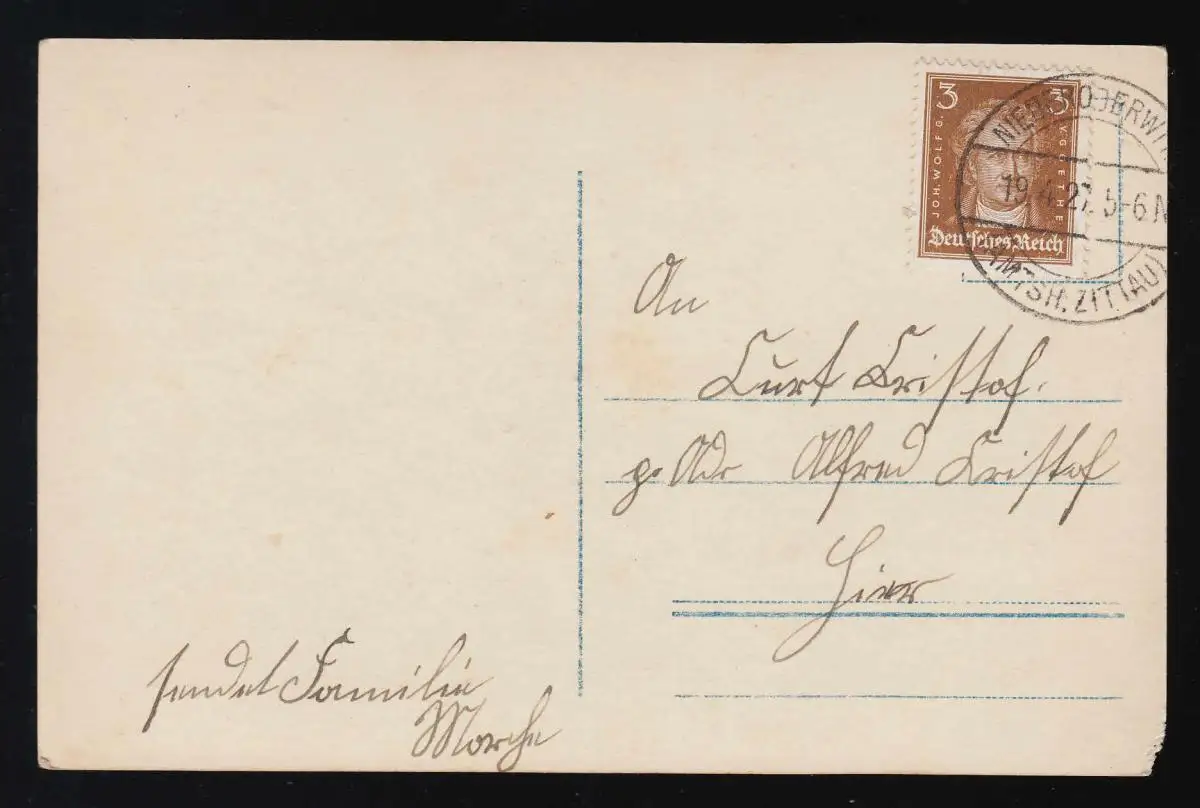 3 3
JOH. WOLFG. V GOETHE
Deutsches Reich
NIEDERODERWI
19.4.27. 5-6 N
(AMTSH. ZITTAU)
An
Curt Cristof.
p. Adr Alfred Cristof
Hier
sendet Familie
Morche